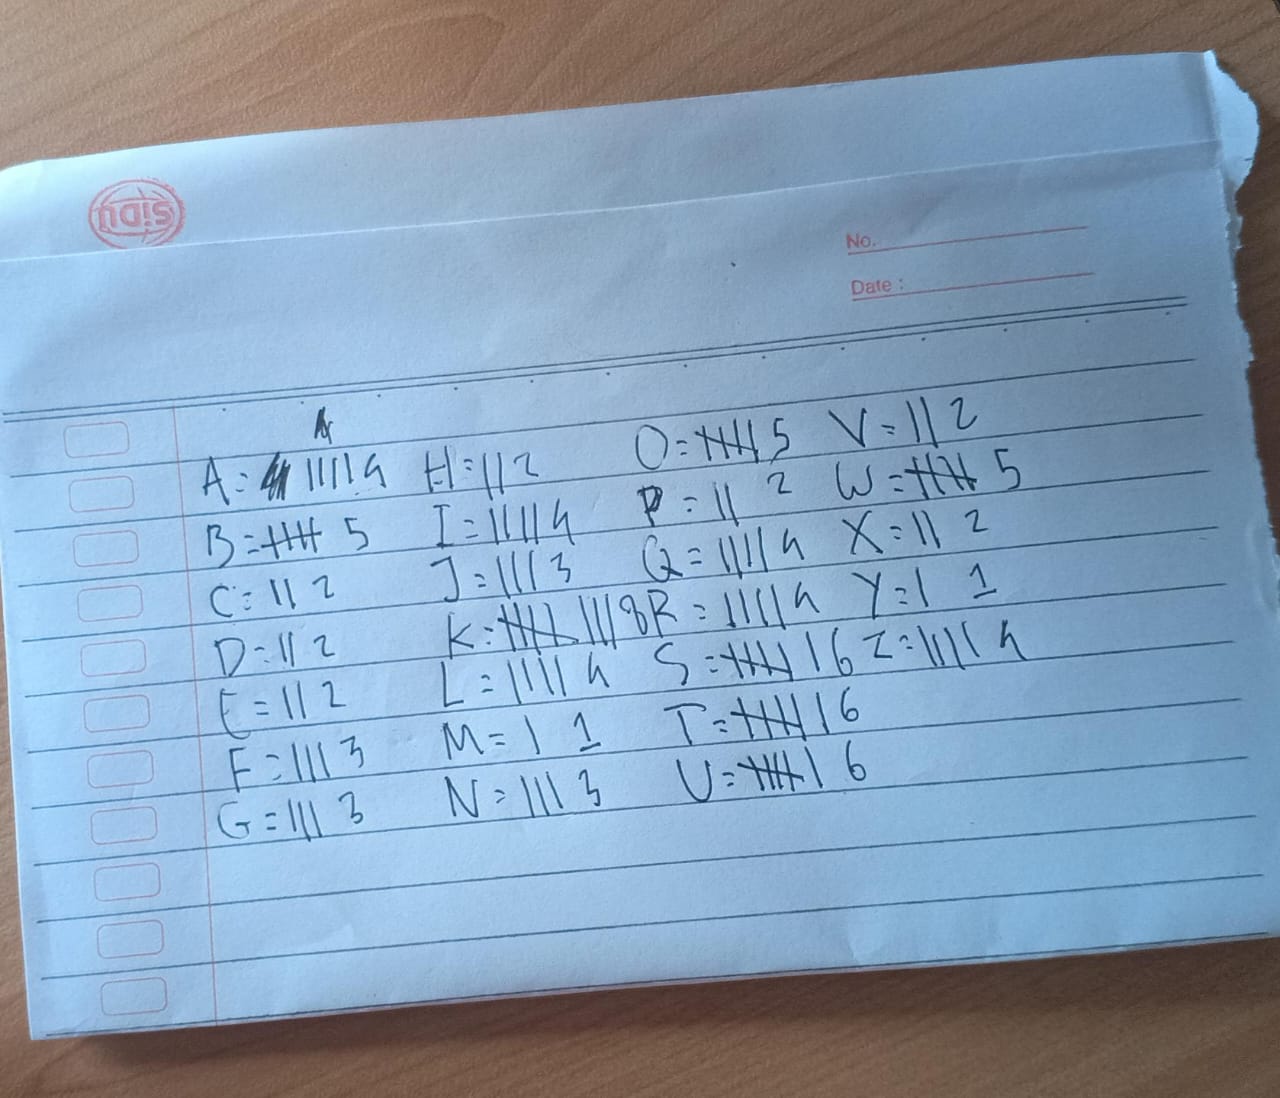 SiDU
No.
Date :
A = |||| 4 H = || 2 O = 卌 5 V = || 2
B = 卌 5 I = |||| 4 P = || 2 W = 卌 5
C = || 2 J = ||| 3 Q = |||| 4 X = || 2
D = || 2 K = 卌 ||| 8 R = |||| 4 Y = | 1
E = || 2 L = |||| 4 S = 卌 | 6 Z = |||| 4
F = ||| 3 M = | 1 T = 卌 | 6
G = ||| 3 N = ||| 3 U = 卌 | 6